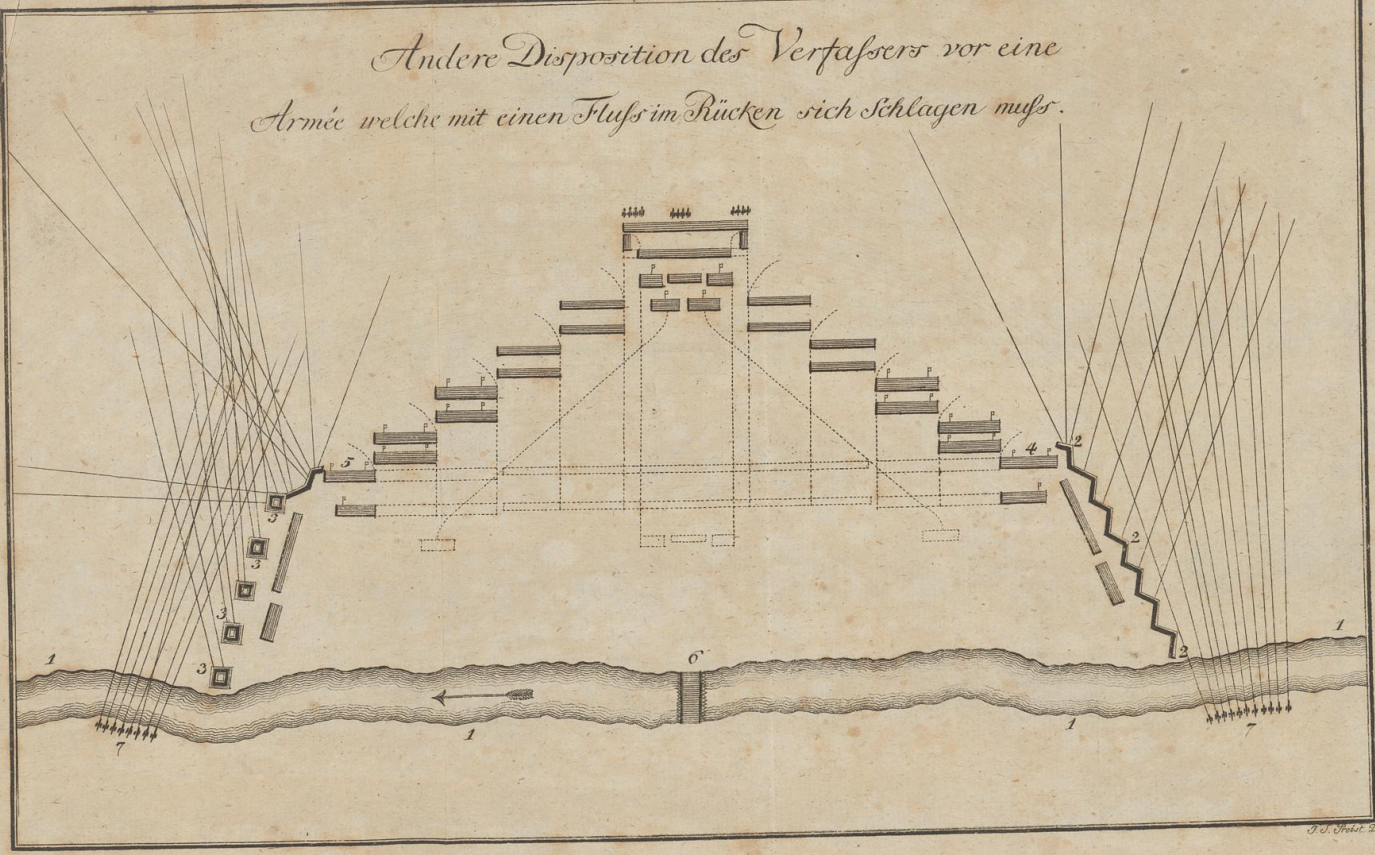 Andere Disposition des Verfaſsers vor eine
Armée welche mit einen Fluſs im Rücken sich Schlagen muſs.
2
4
5
3
2
3
3
3
2
6
1
1
1
1
7
7